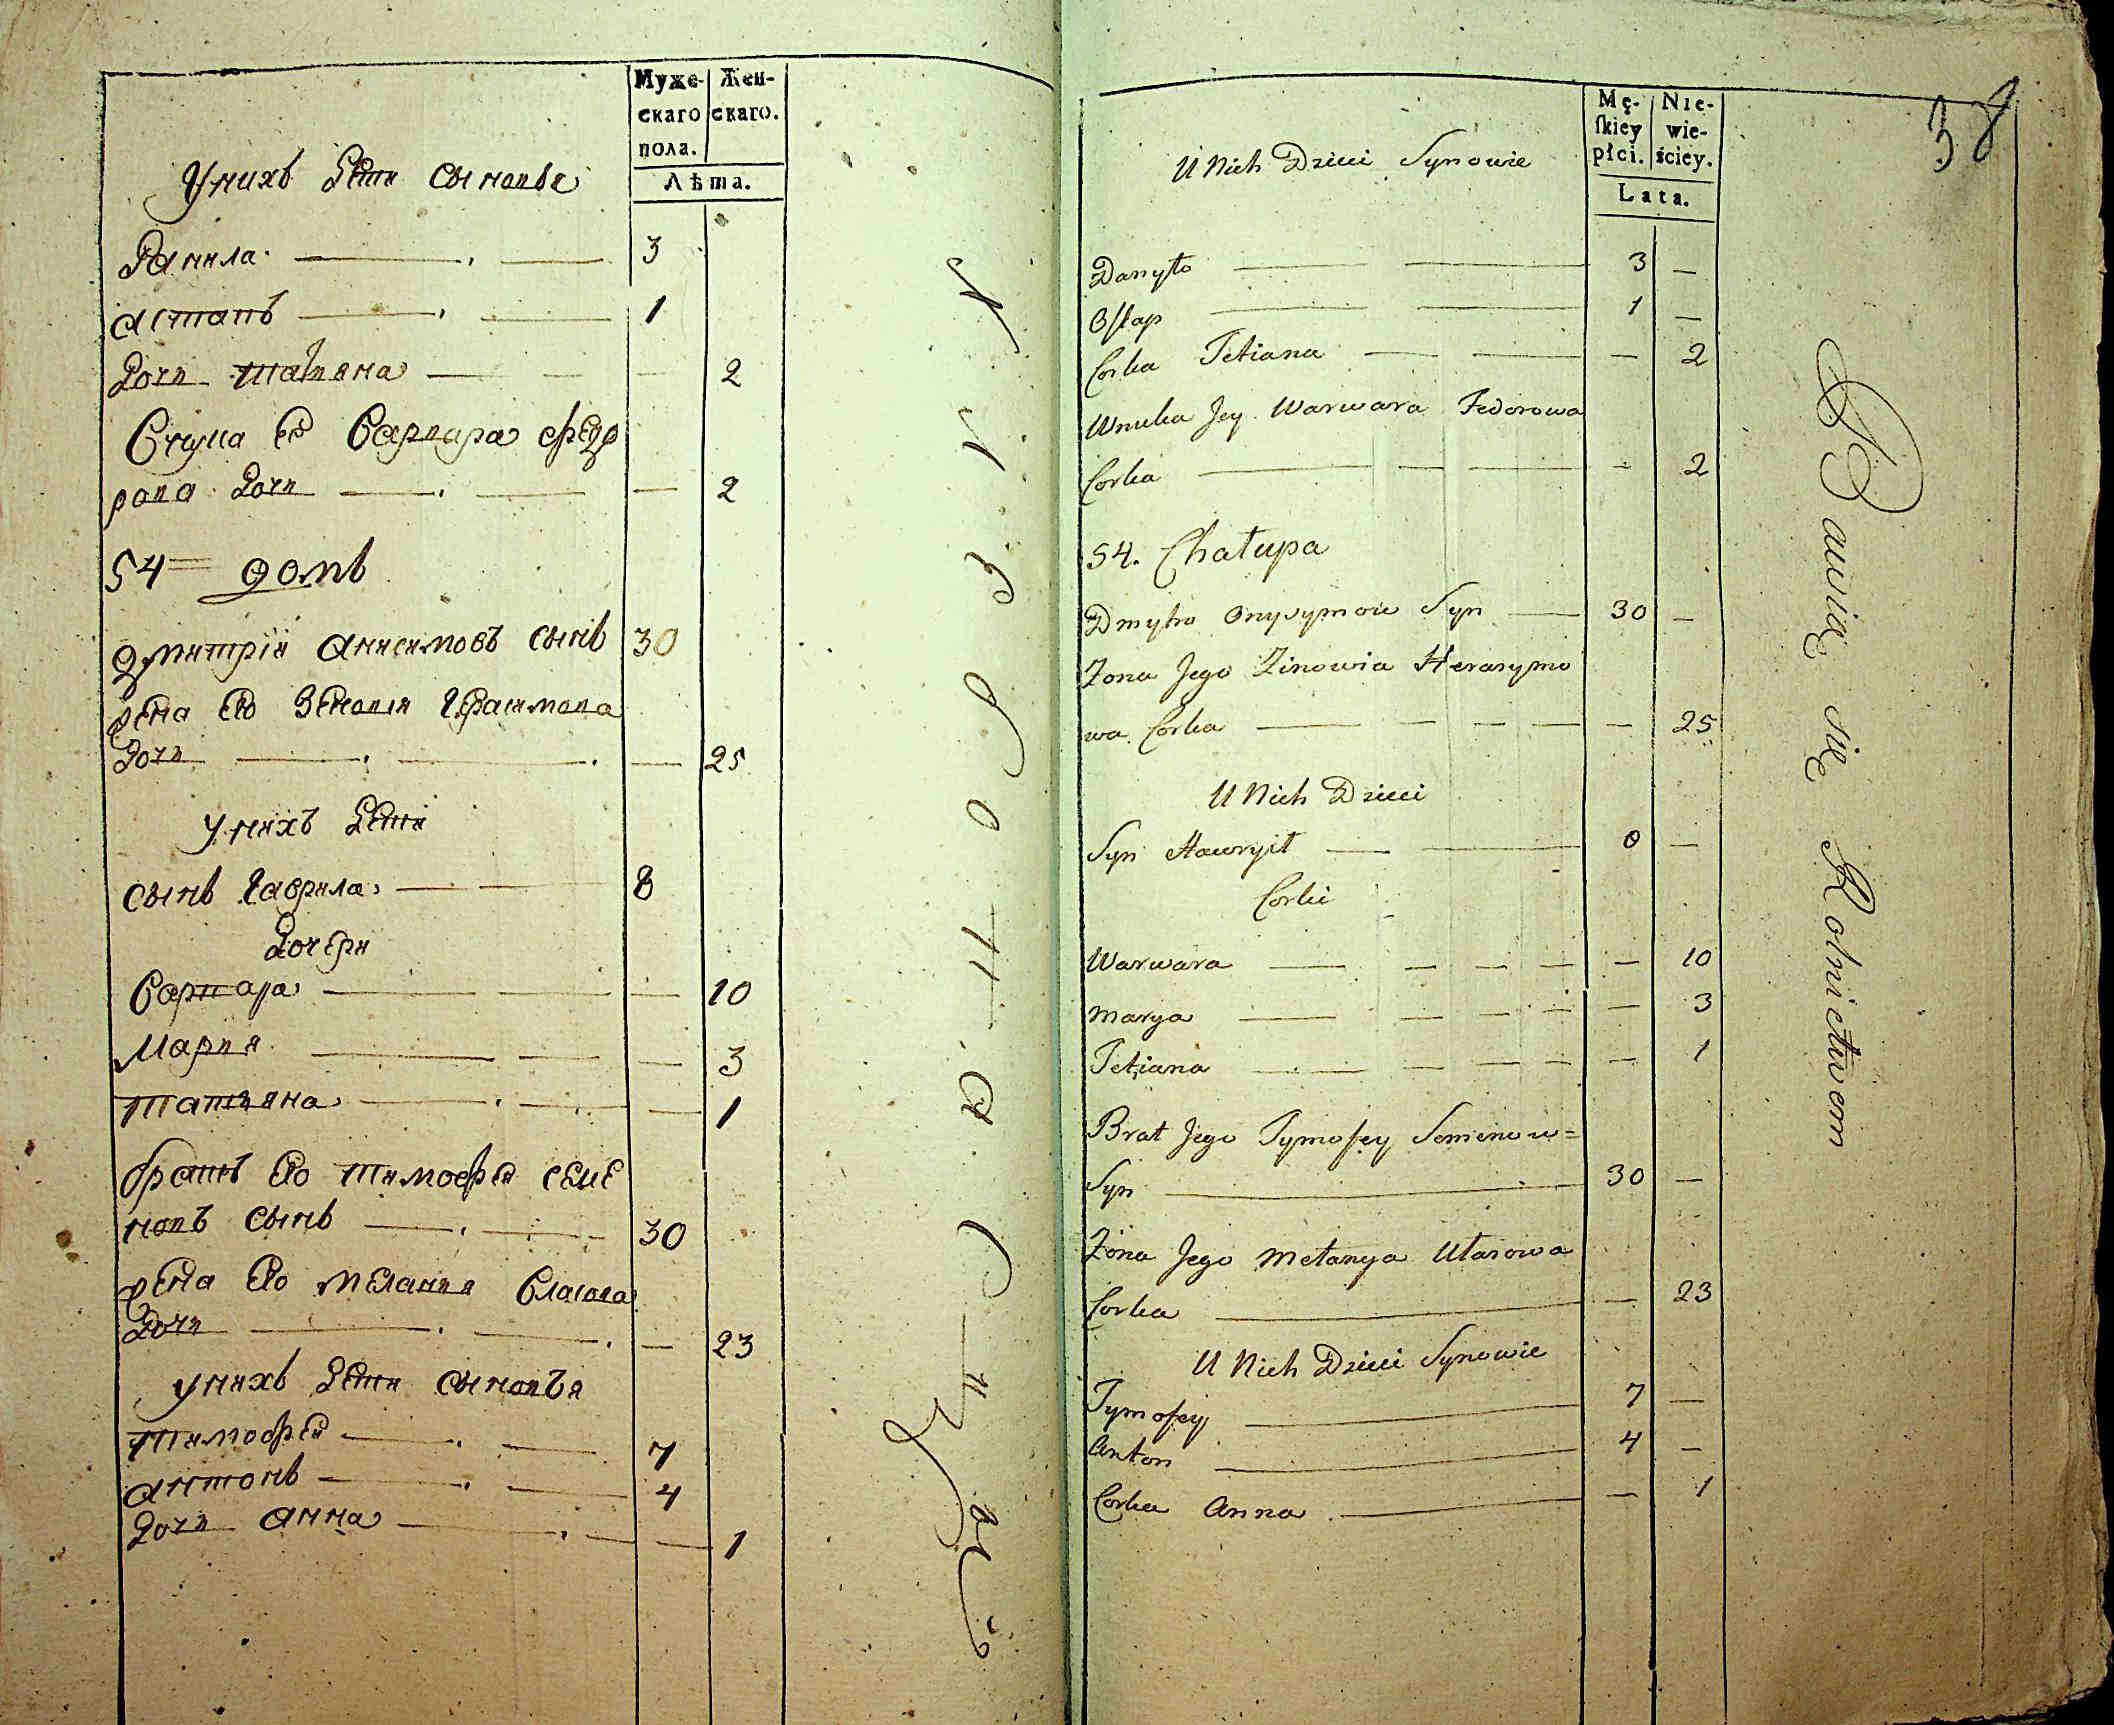 Муже-
скаго
пола.
Жен-
скаго.
Лѣта.
У нихъ дети сыновья
Данила 3
Астапъ 1
Дочь татьяна — 2
Внука ее Варвара федо
рова дочь — 2
54 домъ
Дмитрій Анисимовъ сынъ 30
жена его Зеновия Герасимова
Дочь — 25
У нихъ Дети
сынъ Гаврила 8
Дочери
Варвара — 10
Мария — 3
татьяна — 1
братъ его тимофей семе
новъ сынъ 30
жена его мелания Власова
Дочь — 23
у нихъ Дети сыновья
тимофей 7
антонъ 4
Дочь анна — 1
Mę-
skiey
płci.
Nie-
wie-
ściey.
Lata.
38
U Nich Dzieci Synowie
Danyło 3 —
Ostap 1 —
Corka Tetiana — 2
Wnuka Jey Warwara Fedorowa
Corka — 2
54. Chałupa
Dmytro Onysymow Syn 30 —
Zona Jego Zinowia Herasymo
wa Corka — 25
U Nich Dzieci
Syn Hawryił 8 —
Corki
Warwara — 10
Marya — 3
Tetiana — 1
Brat Jego Tymofey Semenow=
Syn 30 —
Zona Jego Mełanya Ułasowa
Corka — 23
U Nich Dzieci Synowie
Tymofey 7 —
Anton 4 —
Corka Anna — 1
Bawią się Rolnictwem